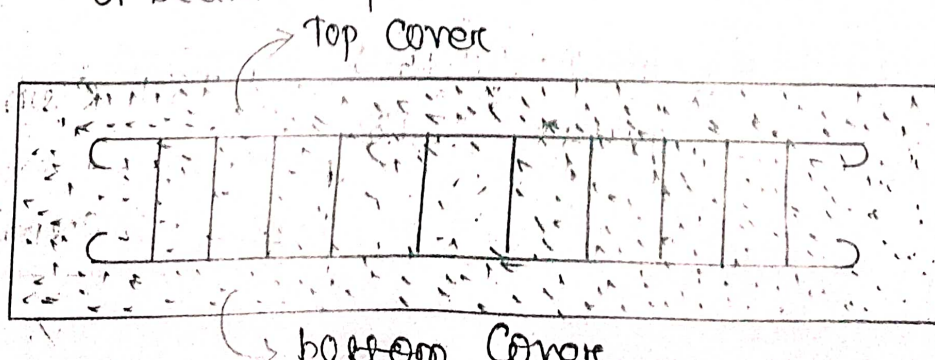 Top cover
bottom Cover